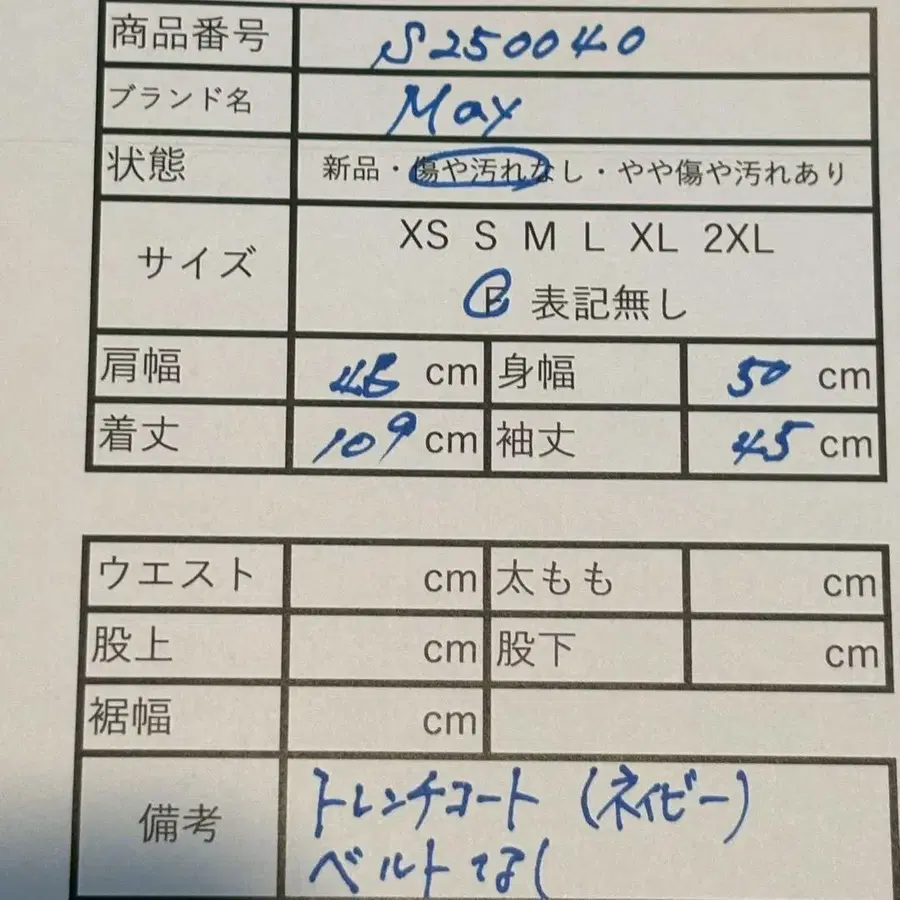 商品番号 S250040
ブランド名 May
状態 新品・傷や汚れなし・やや傷や汚れあり
サイズ XS S M L XL 2XL
F 表記無し
肩幅 cm 身幅 50 cm
着丈 109 cm 袖丈 45 cm
ウエスト cm 太もも cm
股上 cm 股下 cm
裾幅 cm
備考 トレンチコート (ネイビー)
ベルトなし